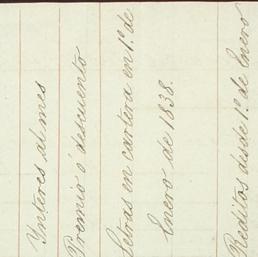 Ynteres al mes
Premio ó descuento
Letras en cartera en 1º de
Enero de 1838.
Reditos desde 1º de Enero